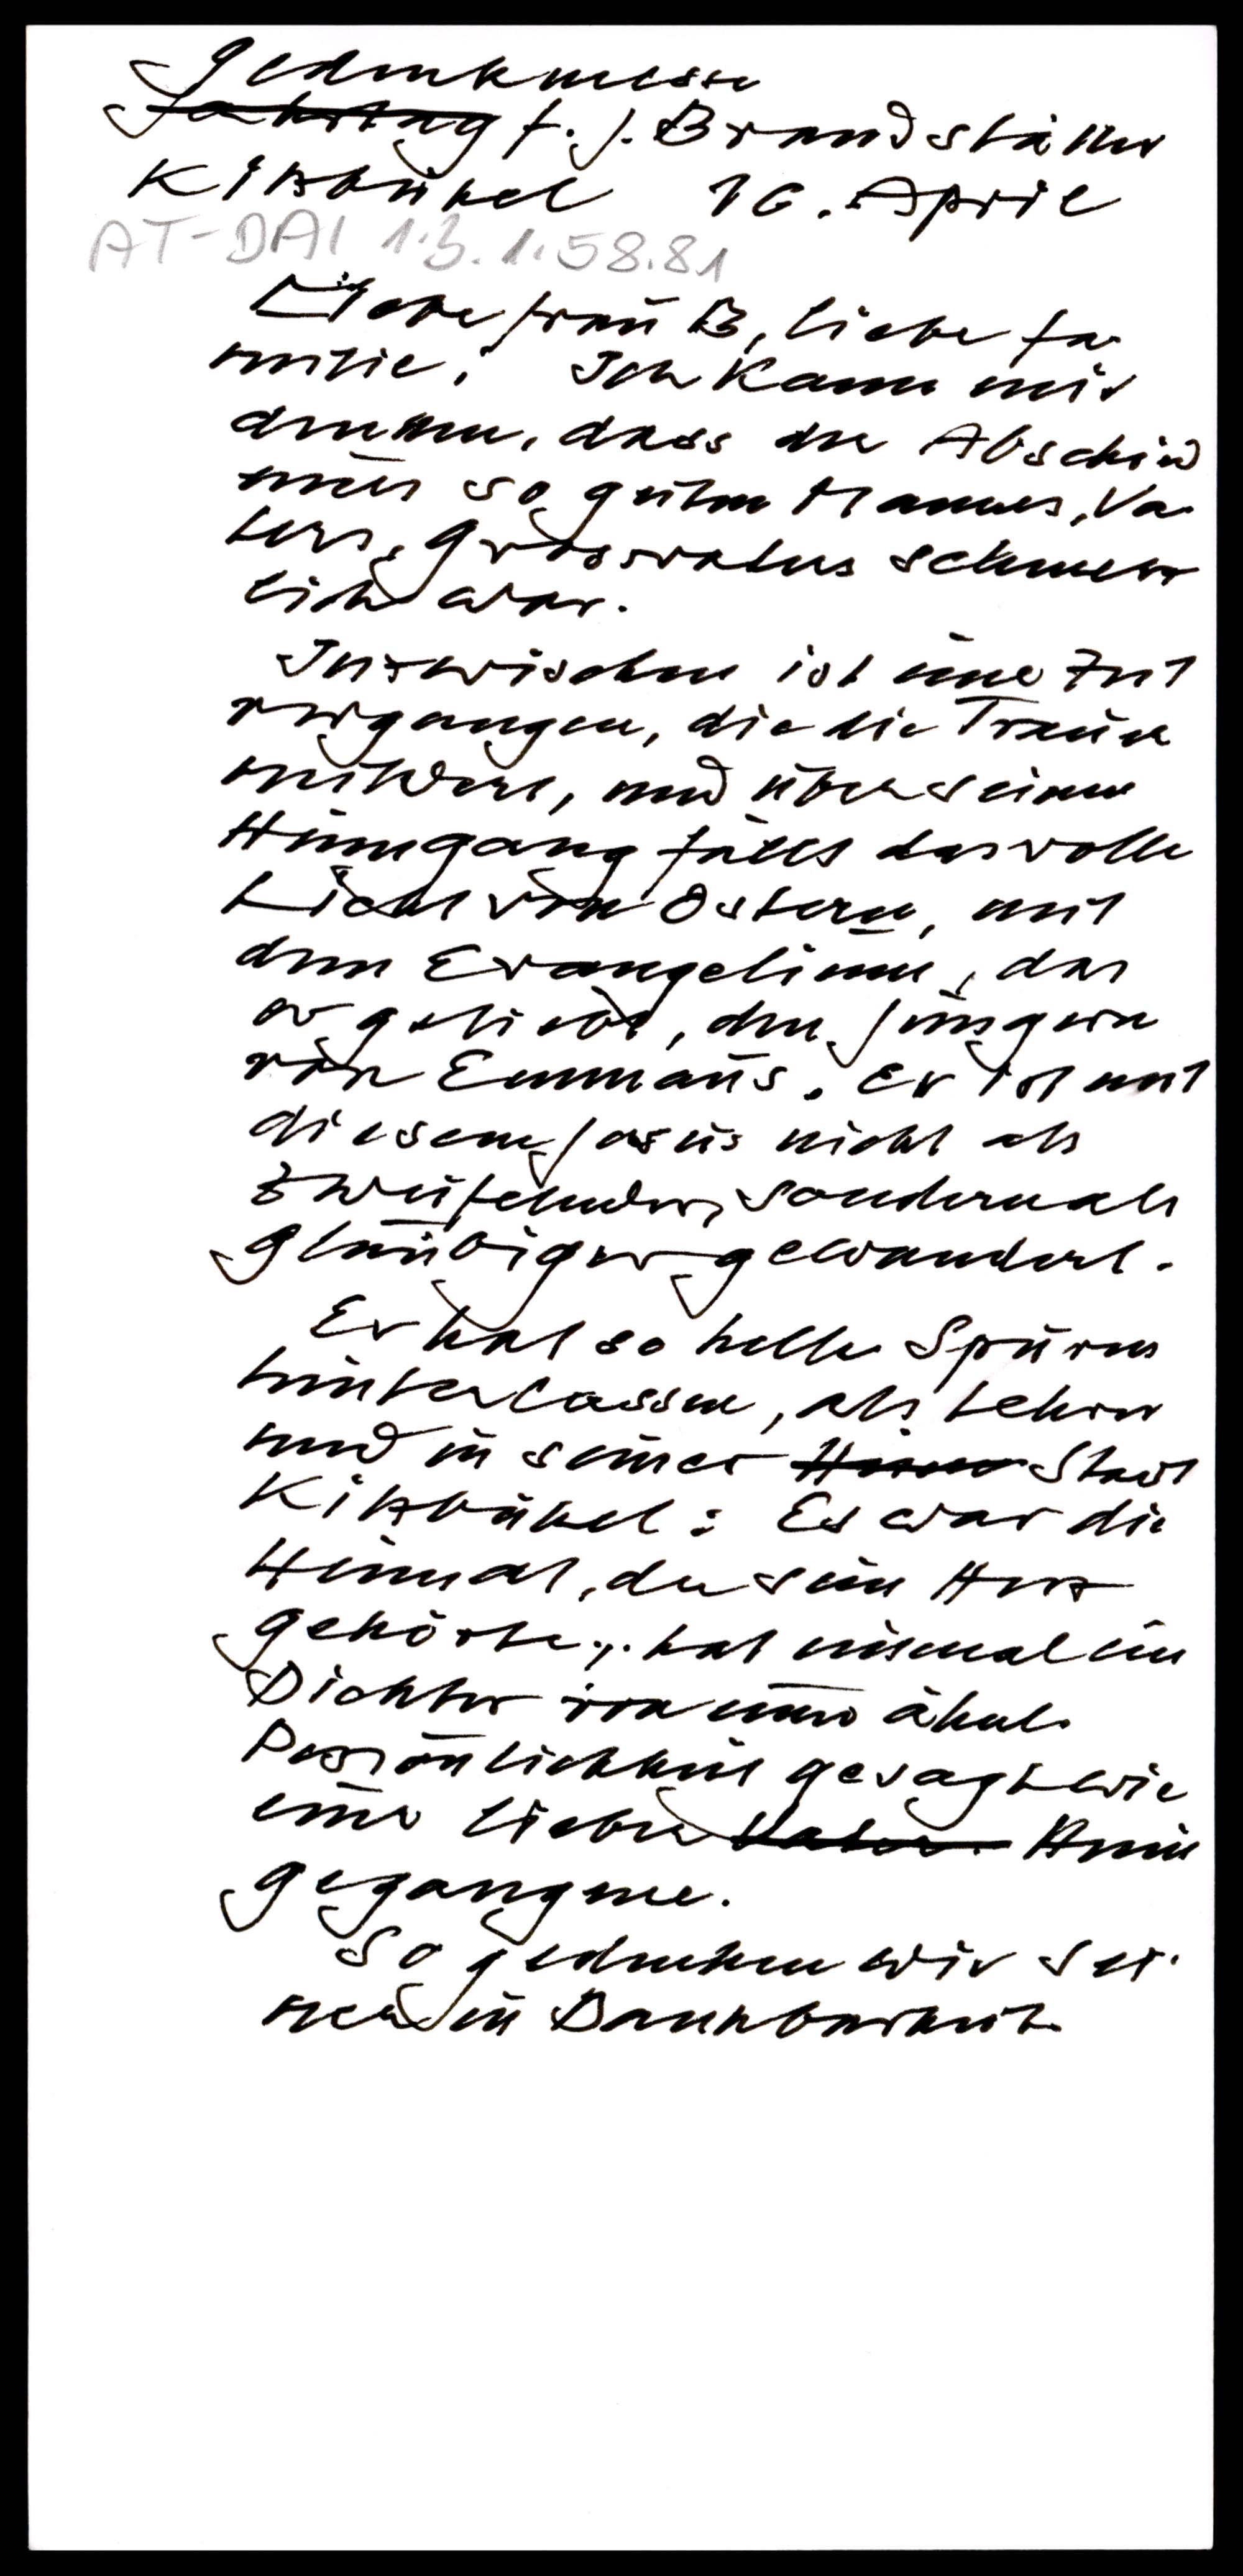 Gedenkmesse
Jahrtag f. J. Brandstätter
Kitzbühel 16. April
AT-DAI 1.3.1.58.81
Liebe Frau B, liebe Fa-
milie! Ich kann mir
denken, dass der Abschied
eines so guten Mannes, Va-
ters, Grossvaters schmerz
lich war.
Inzwischen ist eine Zeit
vergangen, die die Trauer
mildert, und über seinen
Heimgang fällt das volle
Licht von Ostern, mit
dem Evangelium, das
er geliebt, den Jüngern
von Emmaus. Er ist mit
diesem Jesus nicht als
Zweifelnder, sondern als
Gläubiger gewandert.
Er hat so helle Spuren
hinterlassen, als Lehrer
und in seiner Stadt
Kitzbühel: Es war die
Heimat, der sein Herz
gehörte, hat einmal ein
Dichter von einer ähnl.
Persönlichkeit gesagt wie
unser lieber Heim
gegangene.
So gedenken wir sei-
ner in Dankbarkeit.